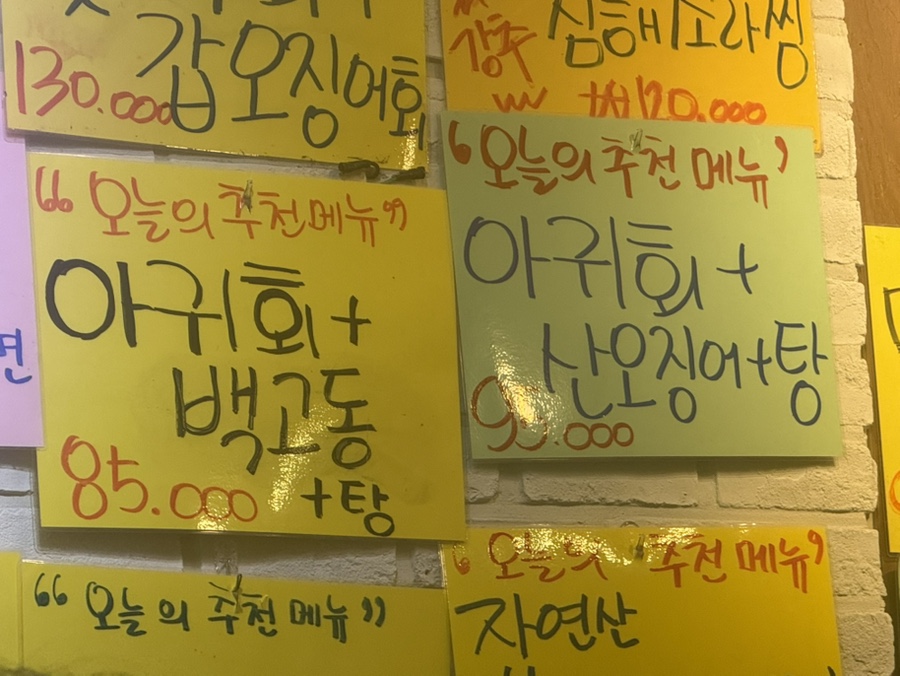 갑오징어회
130.000
강추
심해소라찜
120.000
"오늘의 추천메뉴"
아귀회+
백고동
+탕
85.000
'오늘의 추천 메뉴'
아귀회+
산오징어+탕
"오늘의 추천메뉴"
"오늘의 추천 메뉴"
자연산